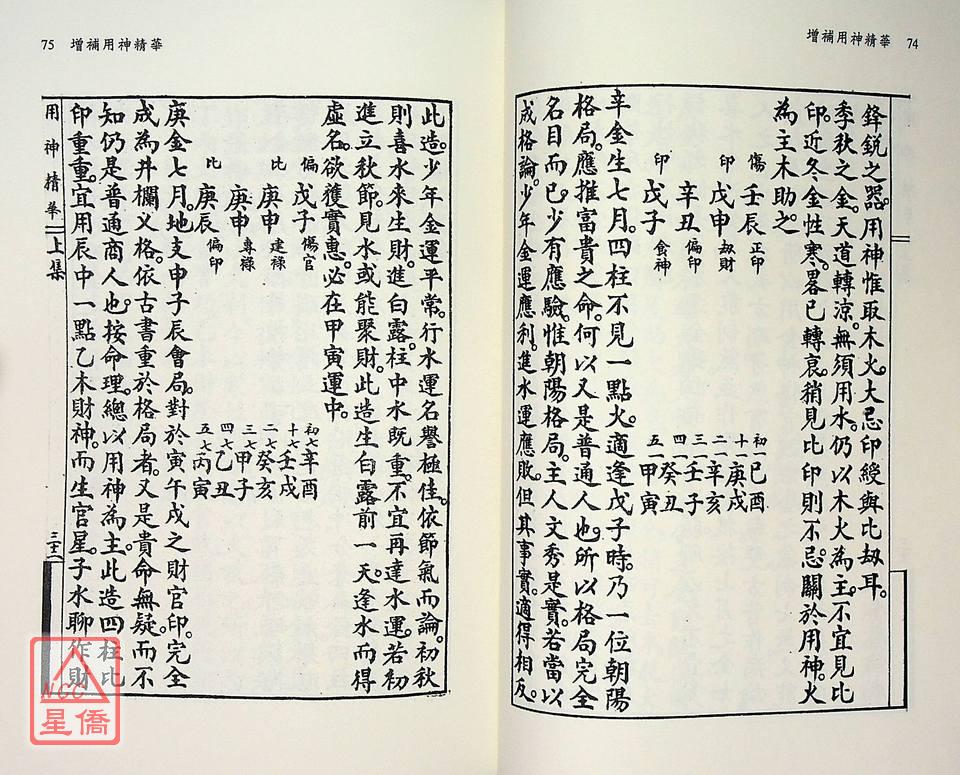 增補用神精華 74
鋒銳之器。用神惟取木火。大忌印綬與比刼耳。
季秋之金。天道轉涼。無須用水。仍以木火為主。不宜見比
印。近冬金性寒。畧已轉衰。稍見比印則不忌。關於用神。火
為主木助之。
傷 壬辰 正印
印 戊申 刼財
辛丑 偏印
印 戊子 食神
初一己酉
十一庚戌
二一辛亥
三一壬子
四一癸丑
五一甲寅
辛金生七月。四柱不見一點火。適逢戊子時。乃一位朝陽
格局。應推富貴之命。何以又是普通人也。所以格局完全
名目而已。少有應驗。惟朝陽格局。主人文秀是實。若當以
成格論。少年金運應利。進水運應敗。但其事實。適得相反。
75 增補用神精華
此造。少年金運平常。行水運名譽極佳。依節氣而論。初秋
則喜水來生財。進白露。柱中水既重。不宜再達水運。若初
進立秋節。見水或能聚財。此造生白露前一天。逢水而得
虛名。欲獲實惠。必在甲寅運中。
偏 戊子 傷官
比 庚申 建祿
庚申 專祿
比 庚辰 偏印
初七辛酉
十七壬戌
二七癸亥
三七甲子
四七乙丑
五七丙寅
庚金七月。地支申子辰會局。對於寅午戌之財官印。完全
成為井欄乂格。依古書重於格局者。又是貴命無疑。而不
知仍是普通商人也。按命理。總以用神為主。此造四柱比
印重重。宜用辰中一點乙木財神。而生官星。子水聊作財
用神精華
上集
三十二
NCC
星僑